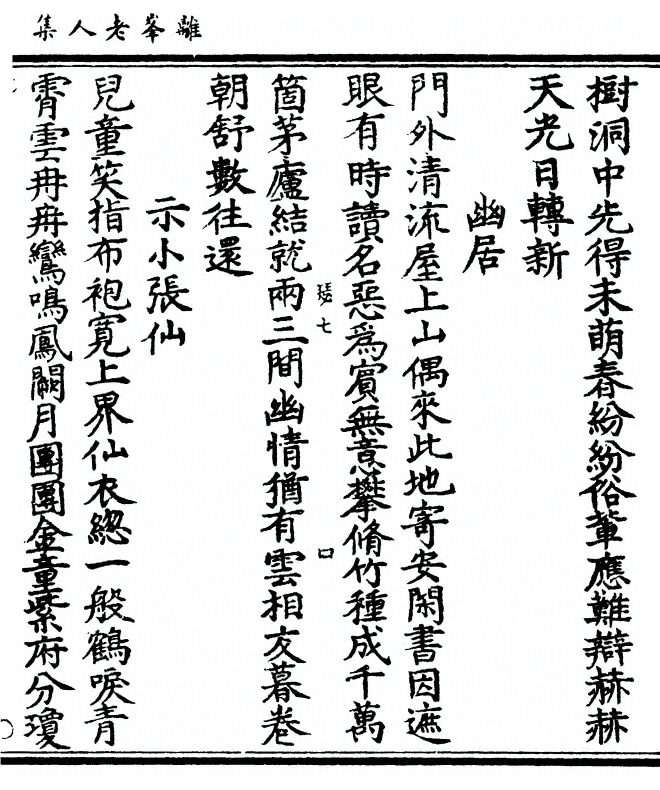 離峯老人集
樹洞中先得未萌春紛紛俗輩應難辯赫赫
天光日轉新
幽居
門外清流屋上山偶來此地寄安閑書因遮
眼有時讀名惡爲賓無意攀脩竹種成千萬
七
口
箇茅廬結就兩三間幽情猶有雲相友暮卷
朝舒數往還
示小張仙
兒童笑指布袍寬上界仙衣緫一般鶴唳青
霄雲冉冉鸞鳴鳳闕月團團金童紫府分瓊